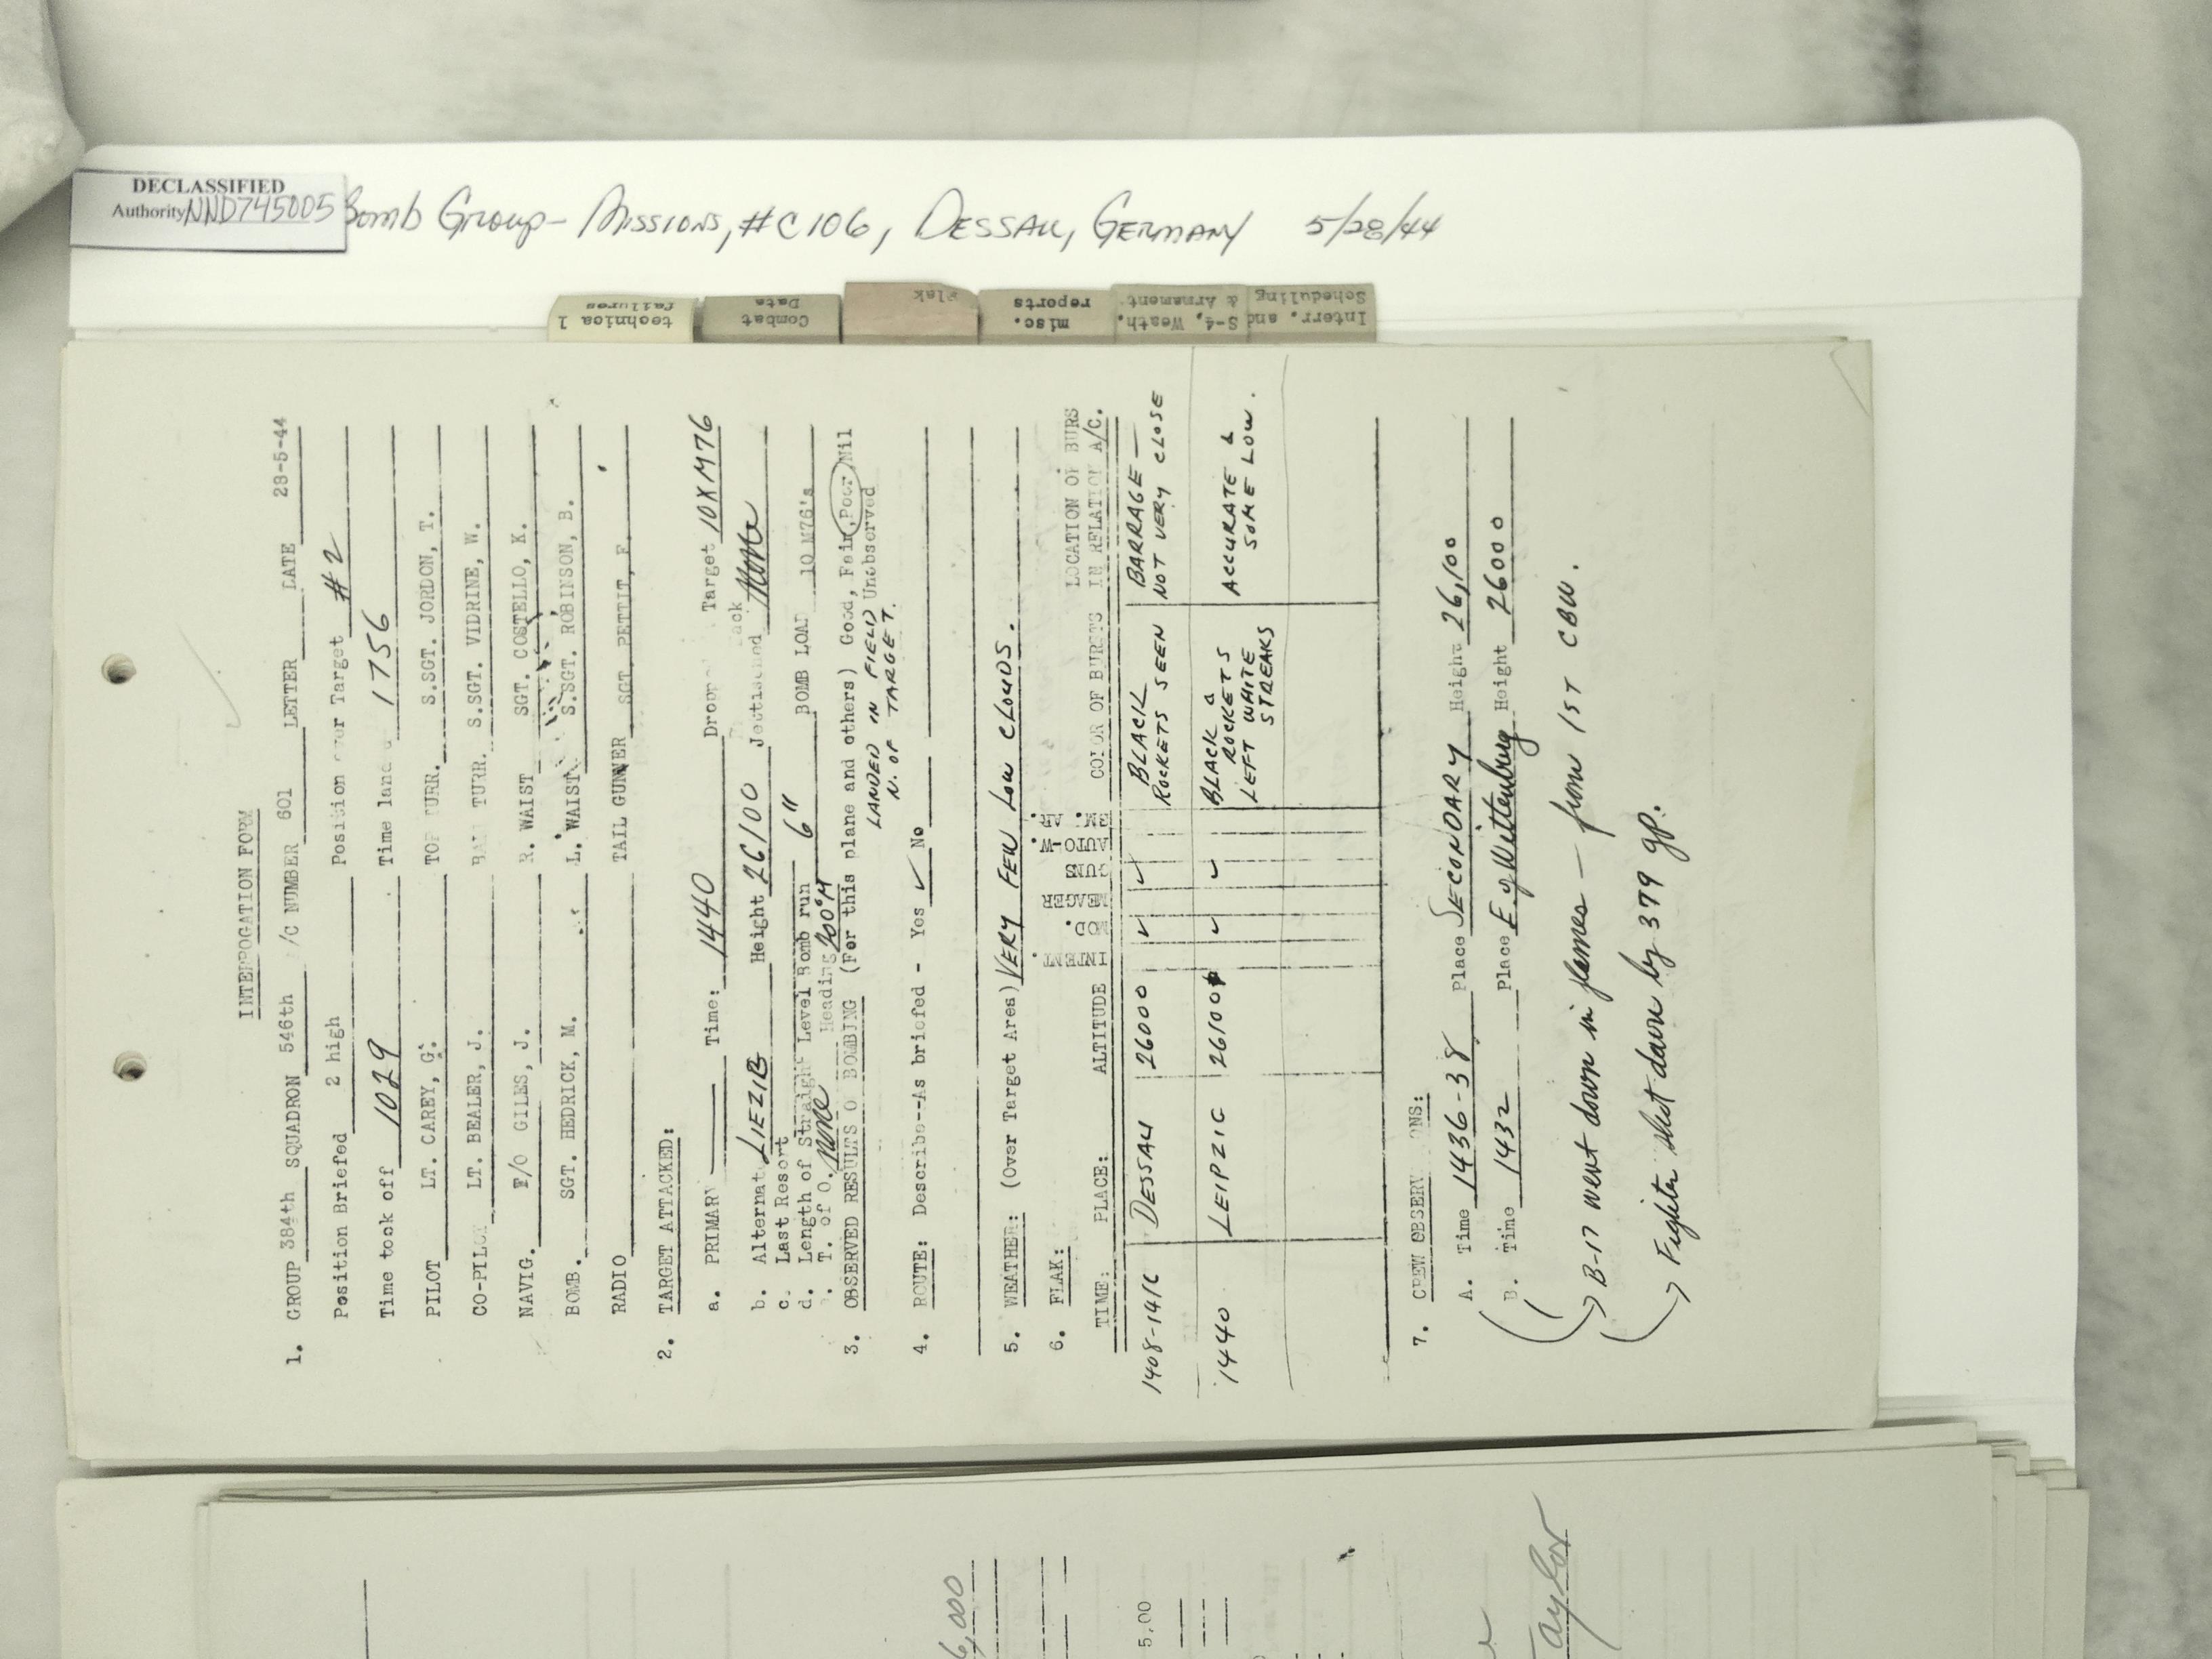 DECLASSIFIED
Authority NND745005
Bomb Group - Missions, #C106, DESSAU, GERMANY 5/28/44
technical failures
Combat Data
Flak
misc. reports
S-4, Weath. & Armament
Interr. and Scheduling
INTERROGATION FORM
1. GROUP 384th SQUADRON 546th /C NUMBER 601 LETTER DATE 28-5-44
Position Briefed 2 high Position over Target #2
Time took off 1029 Time land 1756
PILOT LT. CAREY, G. TOP TURR. S.SGT. JORDON, T.
CO-PILOT LT. BEALER, J. BALL TURR. S.SGT. VIDRINE, W.
NAVIG. F/O GILES, J. R. WAIST SGT. COSTELLO, K.
BOMB. SGT. HEDRICK, M. L. WAIST S.SGT. ROBINSON, B.
RADIO TAIL GUNNER SGT. PETTIT, F.
2. TARGET ATTACKED:
a. PRIMARY Time: 1440 Dropped Target 10XM76
b. Alternate LIEZIB Height 26100 Jettisoned None
c. Last Resort
d. Length of Straight Level Bomb run 6" BOMB LOAD 10 M76's
T. of O. None Heading 200°M
3. OBSERVED RESULTS O BOMBING (For this plane and others) Good, Fair, Poor, Nil
LANDED IN FIELD Unobserved
N. OF TARGET.
4. ROUTE: Describe--As briefed - Yes ✓ No
5. WEATHER: (Over Target Ares) VERY FEW LOW CLOUDS.
6. FLAK:
TIME: PLACE: ALTITUDE INTENT. MOD. MEAGER GUNS AUTO-W. EM. AR. COLOR OF BURSTS LOCATION OF BURS IN RELATION A/C.
1408-1416 DESSAU 26000 ✓ ✓ BLACK ROCKETS SEEN BARRAGE - NOT VERY CLOSE
1440 LEIPZIG 26100 ✓ ✓ BLACK & ROCKETS LEFT WHITE STREAKS ACCURATE & SOME LOW.
7. CREW OBSERV ONS:
A. Time 1436-38 Place SECONDARY Height 26,100
B. Time 1432 Place E. of Wittenburg Height 26000
B-17 went down in flames - from 1ST CBW.
Fighter shot down by 379 gp.
6,000
5,00
Taylor